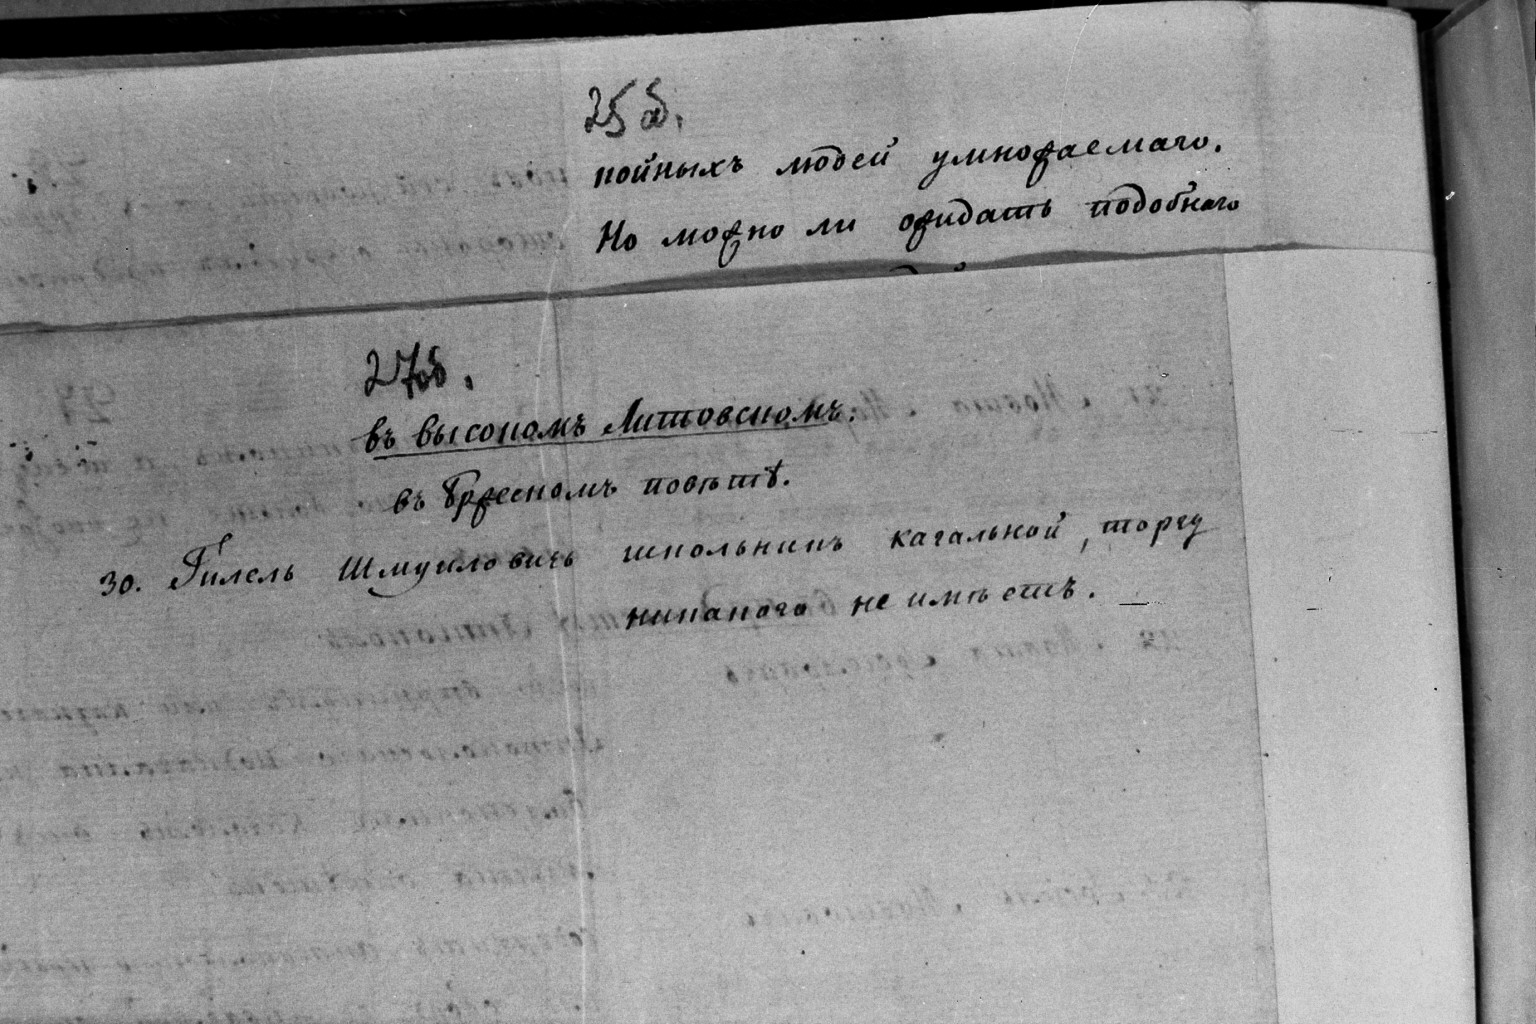 25 об.
койныхъ людей умножаемаго.
Но можно ли ожидать подобнаго
27 об.
въ высокомъ Литовскомъ.
въ Бржескомъ повѣтѣ.
30. Гилель Шмуиловичь школьникъ кагальной, торгу
никакого не имѣетъ.